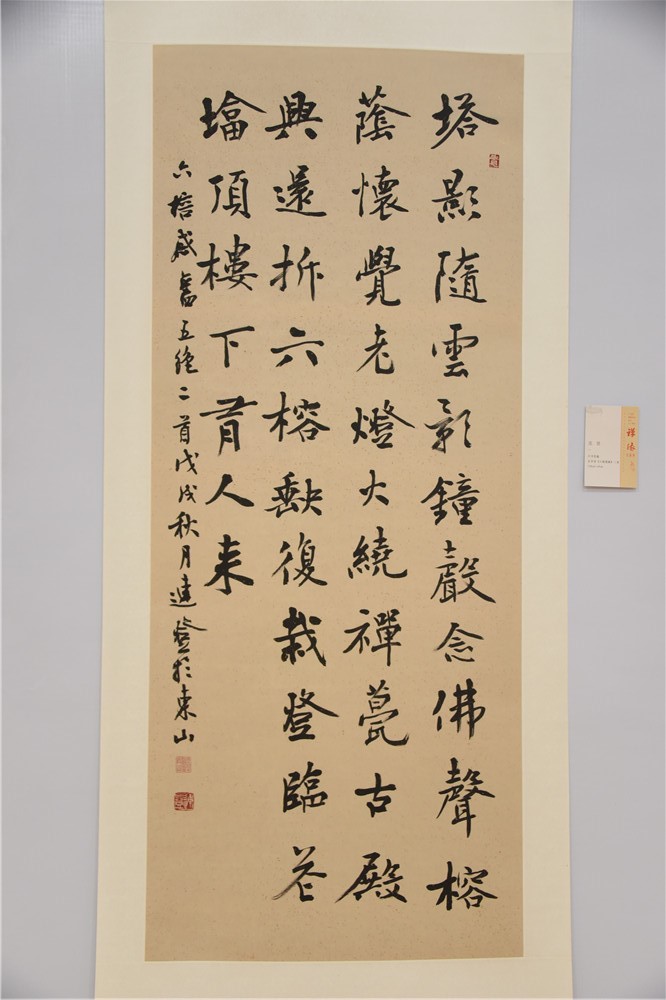 塔影隨雲影鐘聲念佛聲榕
蔭懷覺老燈火繞禪甍古殿
興還拆六榕缺復栽登臨花
墖頂樓下人来
六榕感舊五絕二首戊戌秋月連登於東山